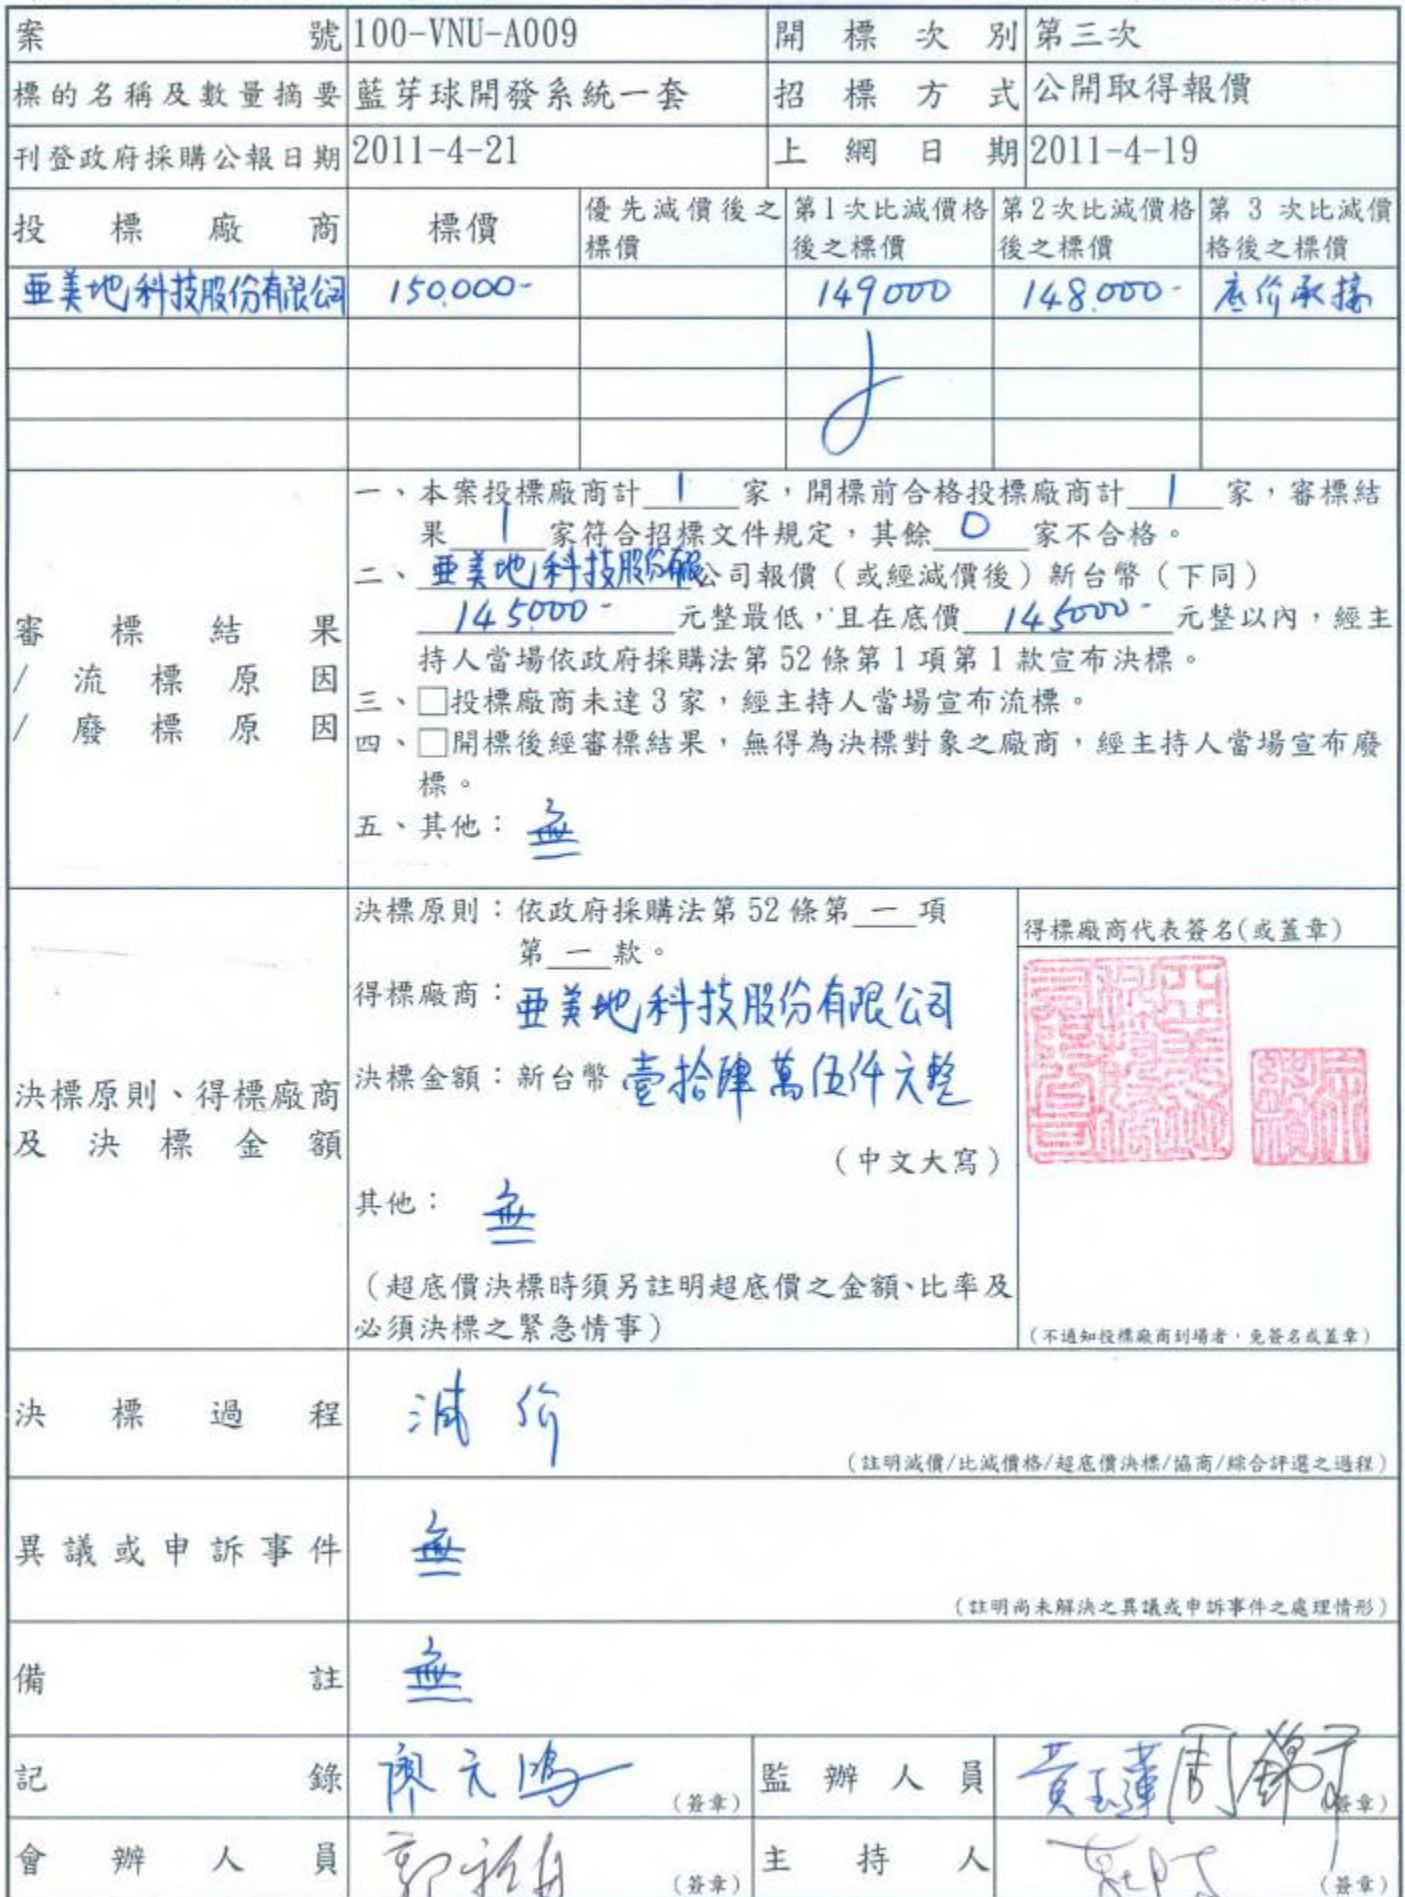 案號 100-VNU-A009 開標次別 第三次
標的名稱及數量摘要 藍芽球開發系統一套 招標方式 公開取得報價
刊登政府採購公報日期 2011-4-21 上網日期 2011-4-19
投標廠商 標價 優先減價後之標價 第1次比減價格後之標價 第2次比減價格後之標價 第 3 次比減價格後之標價
亜美地科技股份有限公司 150,000- 149000 148,000- 底价承接
審標結果
/流標原因
/廢標原因
一、本案投標廠商計 1 家,開標前合格投標廠商計 1 家,審標結
果 1 家符合招標文件規定,其餘 0 家不合格。
二、亜美地科技股份有限公司報價(或經減價後)新台幣(下同)
145000- 元整最低,且在底價 145000- 元整以內,經主
持人當場依政府採購法第 52 條第 1 項第 1 款宣布決標。
三、□投標廠商未達 3 家,經主持人當場宣布流標。
四、□開標後經審標結果,無得為決標對象之廠商,經主持人當場宣布廢
標。
五、其他:無
決標原則、得標廠商
及決標金額
決標原則:依政府採購法第 52 條第 一 項
第 一 款。
得標廠商:亜美地科技股份有限公司
決標金額:新台幣 壹拾肆萬伍仟元整
(中文大寫)
其他:無
(超底價決標時須另註明超底價之金額、比率及
必須決標之緊急情事)
得標廠商代表簽名(或蓋章)
(不通知投標廠商到場者,免簽名或蓋章)
決標過程 減价
(註明減價/比減價格/超底價決標/協商/綜合評選之過程)
異議或申訴事件 無
(註明尚未解決之異議或申訴事件之處理情形)
備註 無
記錄 廖元鴻 (簽章) 監辦人員 黃玉蓮 (簽章)
會辦人員 (簽章) 主持人 (簽章)